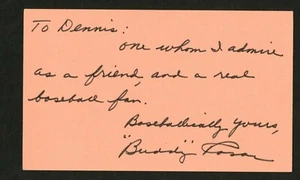 To Dennis:
one whom I admire
as a friend, and a real
baseball fan.
Baseballically yours,
"Buddy" Rosar